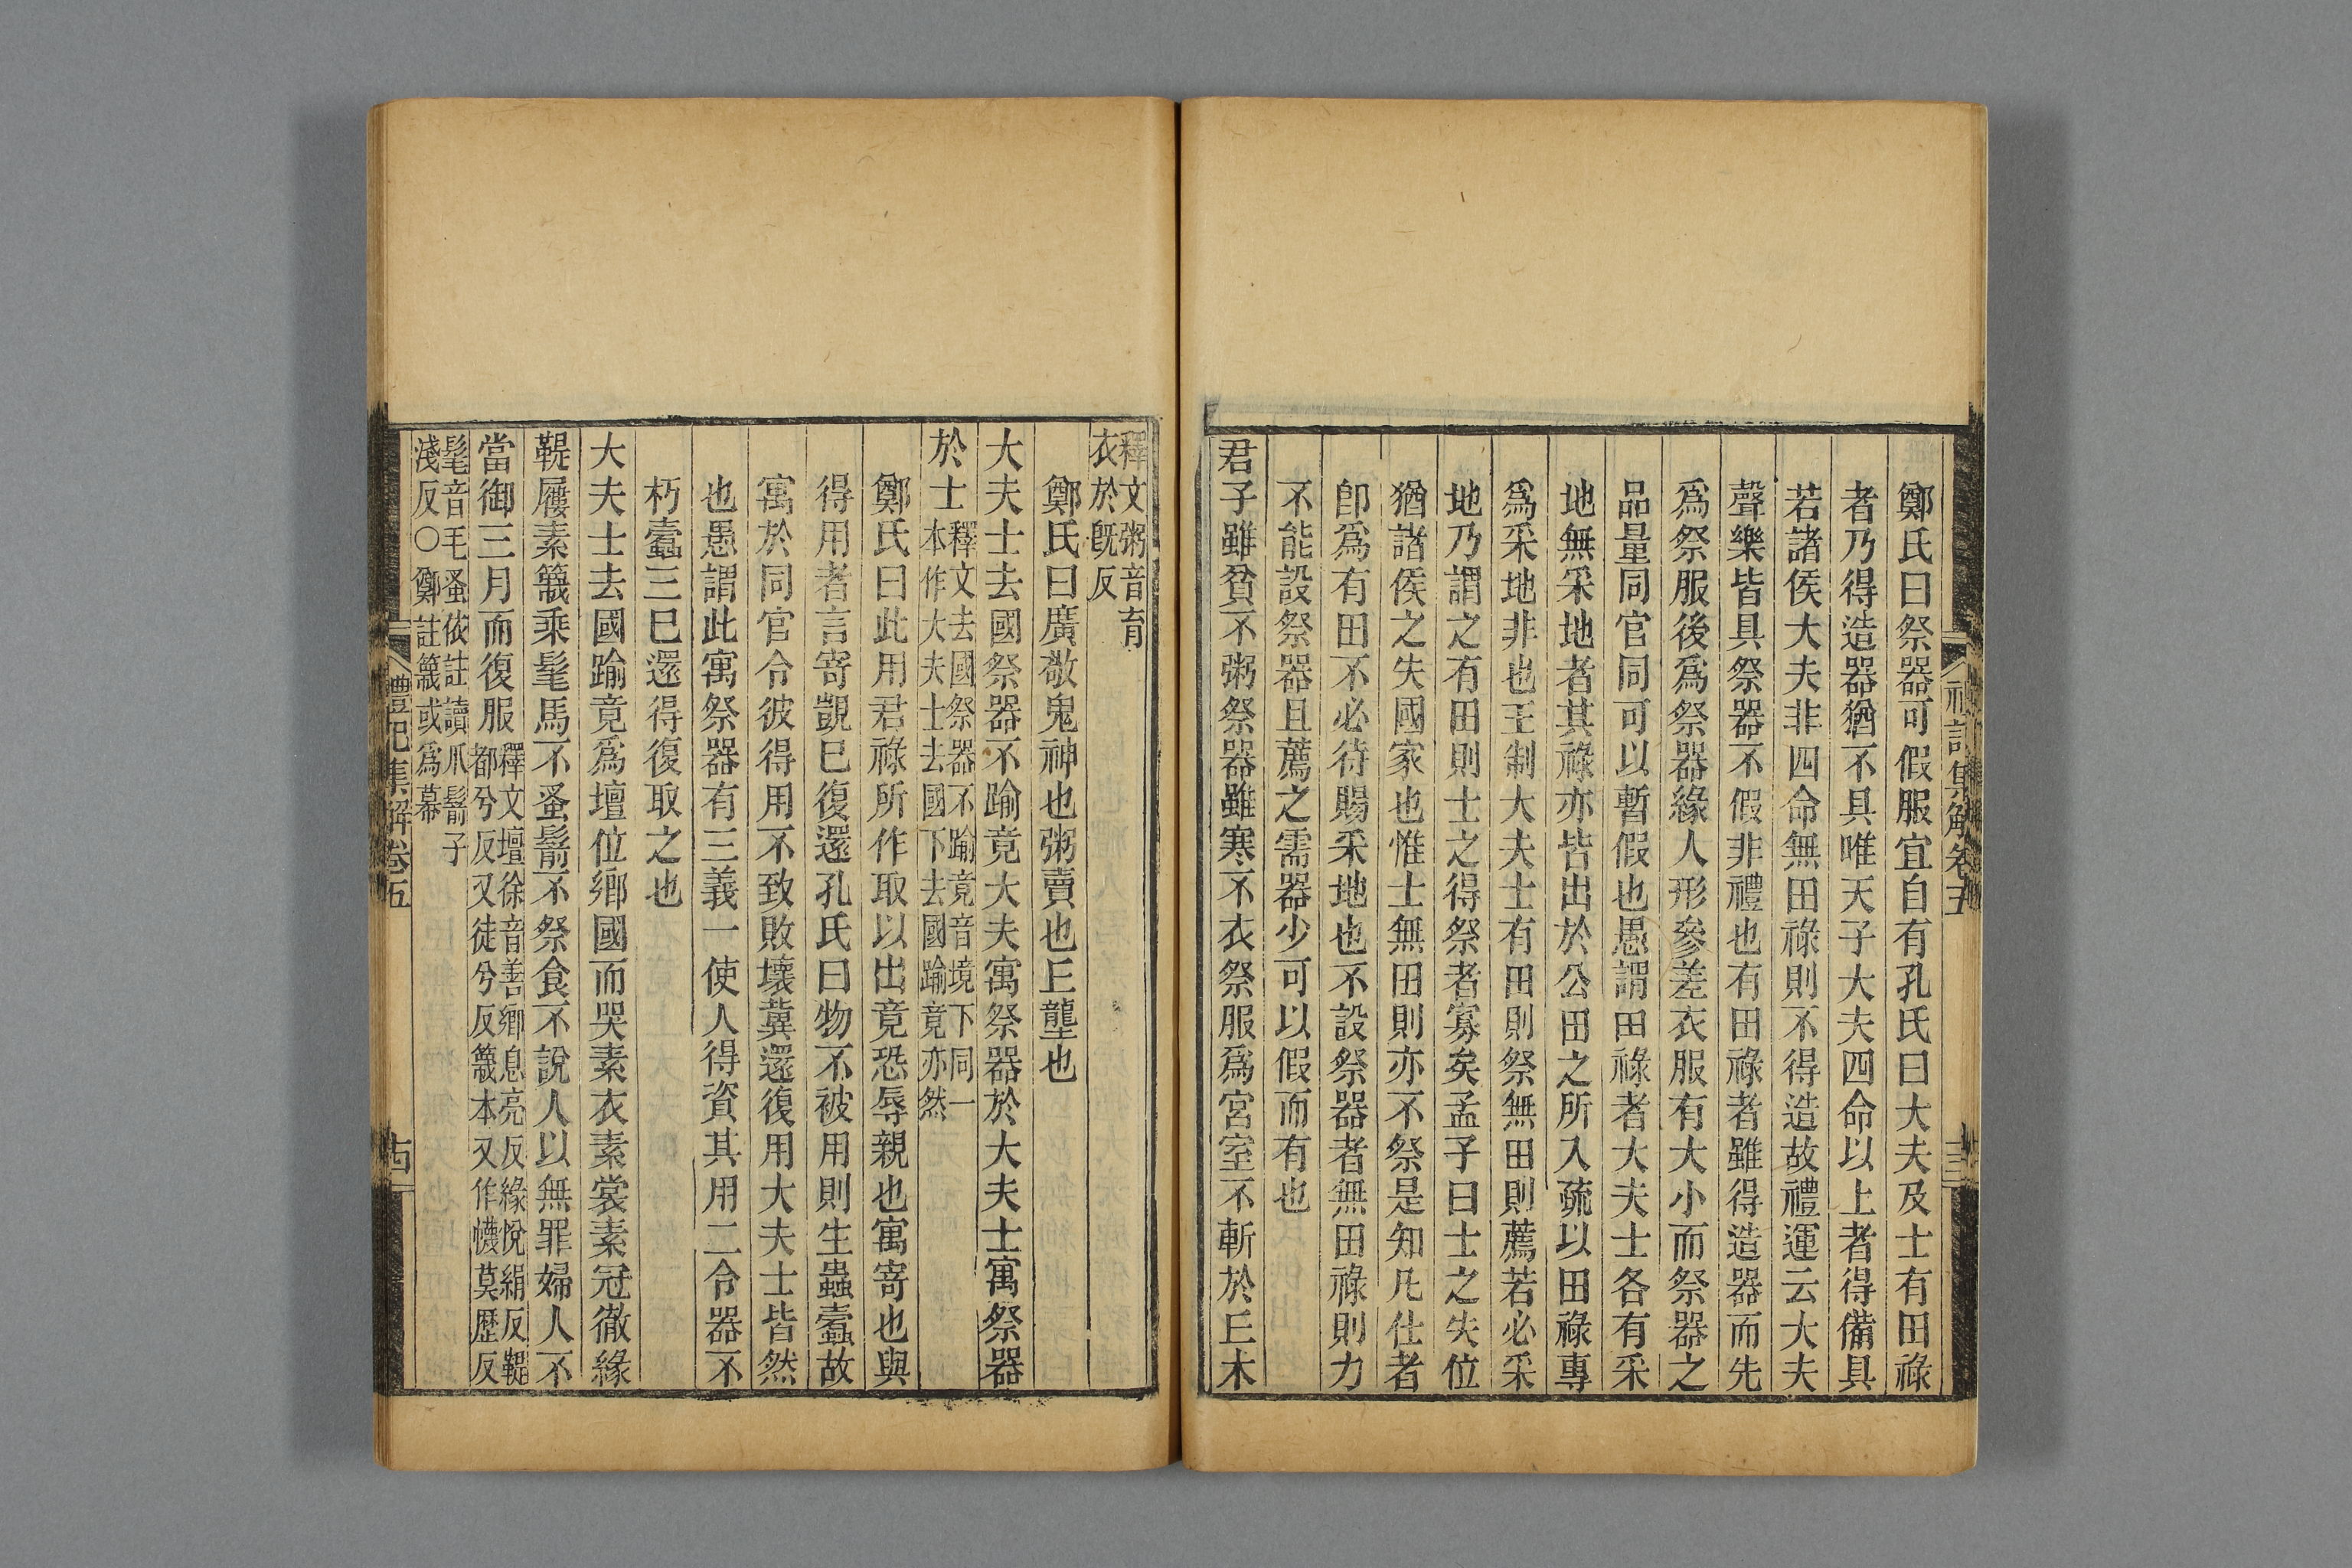 禮記集解卷五
十三
鄭氏曰祭器可假服宜自有孔氏曰大夫及士有田祿
者乃得造器猶不具唯天子大夫四命以上者得備具
若諸侯大夫非四命無田祿則不得造故禮運云大夫
聲樂皆具祭器不假非禮也有田祿者雖得造器而先
爲祭服後爲祭器緣人形參差衣服有大小而祭器之
品量同官同可以暫假也愚謂田祿者大夫士各有采
地無采地者其祿亦皆出於公田之所入疏以田祿專
爲采地非也王制大夫士有田則祭無田則薦若必采
地乃謂之有田則士之得祭者寡矣孟子曰士之失位
猶諸侯之失國家也惟士無田則亦不祭是知凡仕者
卽爲有田不必待賜采地也不設祭器者無田祿則力
不能設祭器且薦之需器少可以假而有也
君子雖貧不粥祭器雖寒不衣祭服爲宮室不斬於丘木
釋文粥音育
衣於旣反
鄭氏曰廣敬鬼神也粥賣也丘壟也
大夫士去國祭器不踰竟大夫寓祭器於大夫士寓祭器
於士釋文去國祭器不踰竟音境下同一
本作大夫士去國下去國踰竟亦然
鄭氏曰此用君祿所作取以出竟恐辱親也寓寄也與
得用者言寄覬巳復還孔氏曰物不被用則生蟲蠹故
寓於同官令彼得用不致敗壞冀還復用大夫士皆然
也愚謂此寓祭器有三義一使人得資其用二令器不
朽蠹三巳還得復取之也
大夫士去國踰竟爲壇位鄉國而哭素衣素裳素冠徹緣
鞮屨素簚乘髦馬不蚤鬋不祭食不說人以無罪婦人不
當御三月而復服釋文壇徐音善鄉息亮反緣悅絹反鞮
都兮反又徒兮反簚本又作幭莫歷反
髦音毛蚤依註讀爪鬋子
淺反○鄭註簚或爲幕
禮記集解卷五
十四